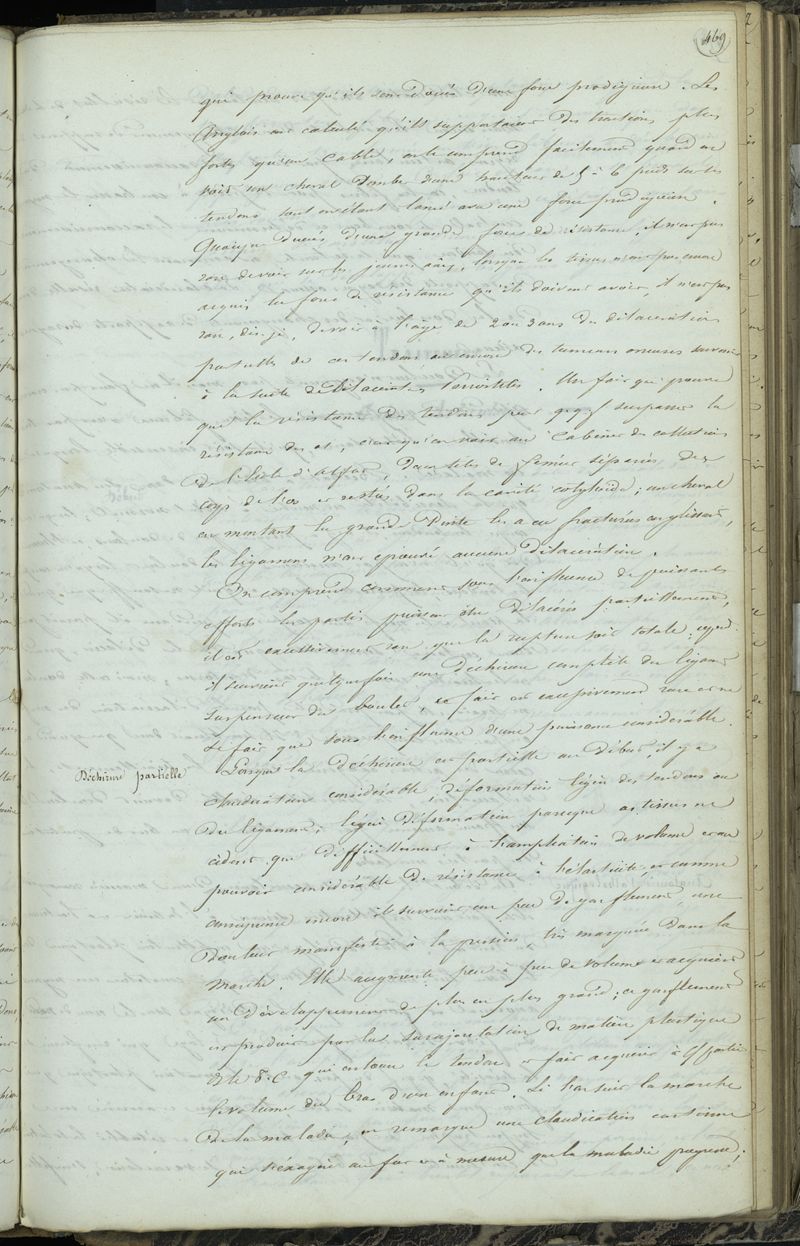 469
qui prouve qu'ils sont doués d'une force prodigieuse. Les
Anglais ont calculé qu'ils supportaient des tractions plus
fortes qu'un cable, on le comprend facilement quand on
voit un cheval tomber d'une hauteur de 5 à 6 pieds sur les
tendons tout en étant lancé avec une force prodigieuse.
Quoique doués d'une grande force de résistance, il n'est pas
rare de voir sur les jeunes , lorsque les tissus n'ont pas encore
acquis la force de résistance qu'ils doivent avoir, il n'est pas
rare, dis-je, de voir à l'âge de 2 ou 3 ans des dilacérations
partielles de ces tendons ou encore des tumeurs osseuses survenir
à la suite de dilacérations . Un fait qui prouve
que la résistance des tendons peut qqf surpasser la
résistance des os, c'est qu'on voit au Cabinet des collections
de l'Ecole d'alfort, deux têtes de fémur séparées du
corps de l'os et restées dans la cavité cotyloïde; un cheval
en montant la grande les a eu fracturées en glissant,
les ligamens n'ont éprouvé aucune dilacération.
On comprend comment sous l'influence de puissants
efforts les parties puissent être dilacérées partiellement,
il est excessivement rare que la rupture soit totale; cepd
il survient quelquefois une déchirure complète du ligament
suspenseur du boulet, ce fait est excessivement rare et ne
se fait que sous l'influence d'une puissance considérable.
Déchirure partielle
Lorsque la déchirure est partielle au début, il y a
claudication considérable, déformation légère des tendons ou
du ligament; légère déformation parceque ces tissus ne
cèdent que difficilement à l'ampliation de volume et au
pouvoir considérable de résistance à l'élasticité, et comme
conséquence encore il survient un peu de gonflement, une
douleur manifeste à la pression, très marquée dans la
marche. Elle augmente peu à peu de volume et acquière
un développement de plus en plus grand; ce gonflement
est produit par la surajoutation de matière plastique
ds le T.C. qui entoure le tendon et fait acquérir à
le volume du bras d'un enfant. Si l'on suit la marche
de la maladie, on remarque une claudication continue
qui s'exagère au fur et à mesure que la maladie progresse,